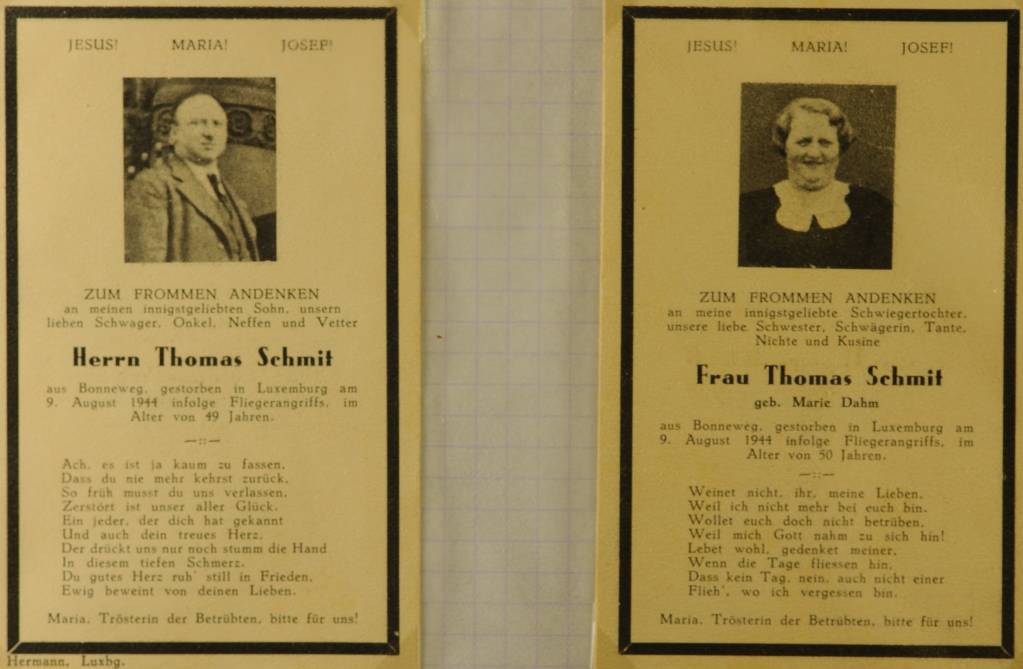 JESUS! MARIA! JOSEF!
ZUM FROMMEN ANDENKEN
an meinen innigstgeliebten Sohn, unsern
lieben Schwager, Onkel, Neffen und Vetter
Herrn Thomas Schmit
aus Bonneweg, gestorben in Luxemburg am
9. August 1944 infolge Fliegerangriffs, im
Alter von 49 Jahren.
—::—
Ach, es ist ja kaum zu fassen,
Dass du nie mehr kehrst zurück,
So früh musst du uns verlassen,
Zerstört ist unser aller Glück.
Ein jeder, der dich hat gekannt
Und auch dein treues Herz,
Der drückt uns nur noch stumm die Hand
In diesem tiefen Schmerz.
Du gutes Herz ruh' still in Frieden,
Ewig beweint von deinen Lieben.
Maria, Trösterin der Betrübten, bitte für uns!
Hermann, Luxbg.
JESUS! MARIA! JOSEF!
ZUM FROMMEN ANDENKEN
an meine innigstgeliebte Schwiegertochter,
unsere liebe Schwester, Schwägerin, Tante,
Nichte und Kusine
Frau Thomas Schmit
geb. Marie Dahm
aus Bonneweg, gestorben in Luxemburg am
9. August 1944 infolge Fliegerangriffs, im
Alter von 50 Jahren.
—::—
Weinet nicht, ihr, meine Lieben,
Weil ich nicht mehr bei euch bin.
Wollet euch doch nicht betrüben,
Weil mich Gott nahm zu sich hin!
Lebet wohl, gedenket meiner,
Wenn die Tage fliessen hin,
Dass kein Tag, nein, auch nicht einer
Flieh', wo ich vergessen bin.
Maria, Trösterin der Betrübten, bitte für uns!